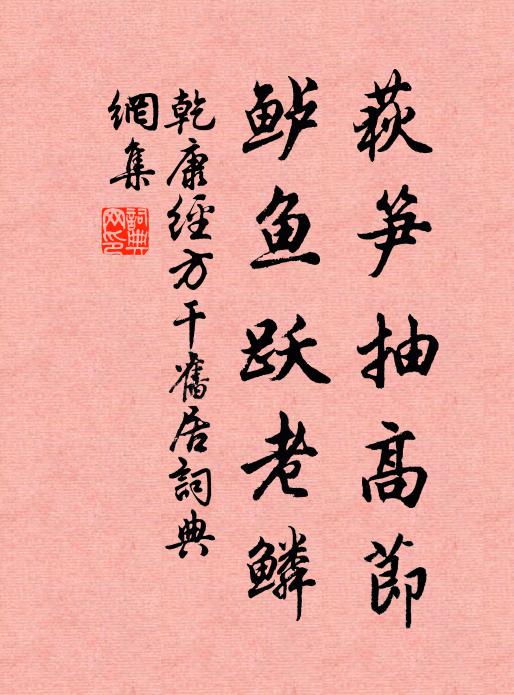 荻笋抽高節
鲈鱼跃老鳞
乾康經方干舊居詞典
網集
詞典
网印